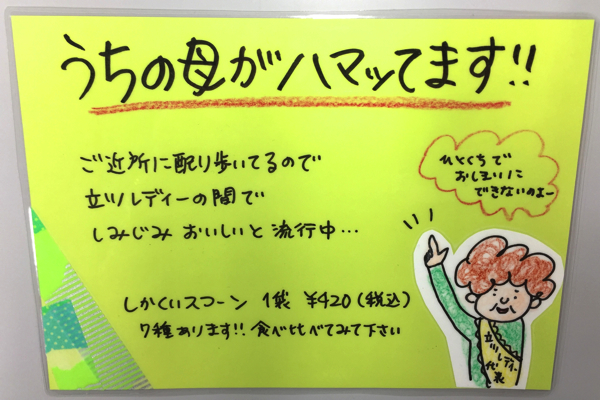 うちの母がハマッてます!!
ご近所に配り歩いてるので
立ツノレディーの間で
しみじみ おいしいと 流行中…
ひとくちで
おしまいに
できないのよー
しかくいスコーン 1袋 ¥420(税込)
7種あります!! 食べ比べてみて下さい
立ツノレディー
代表